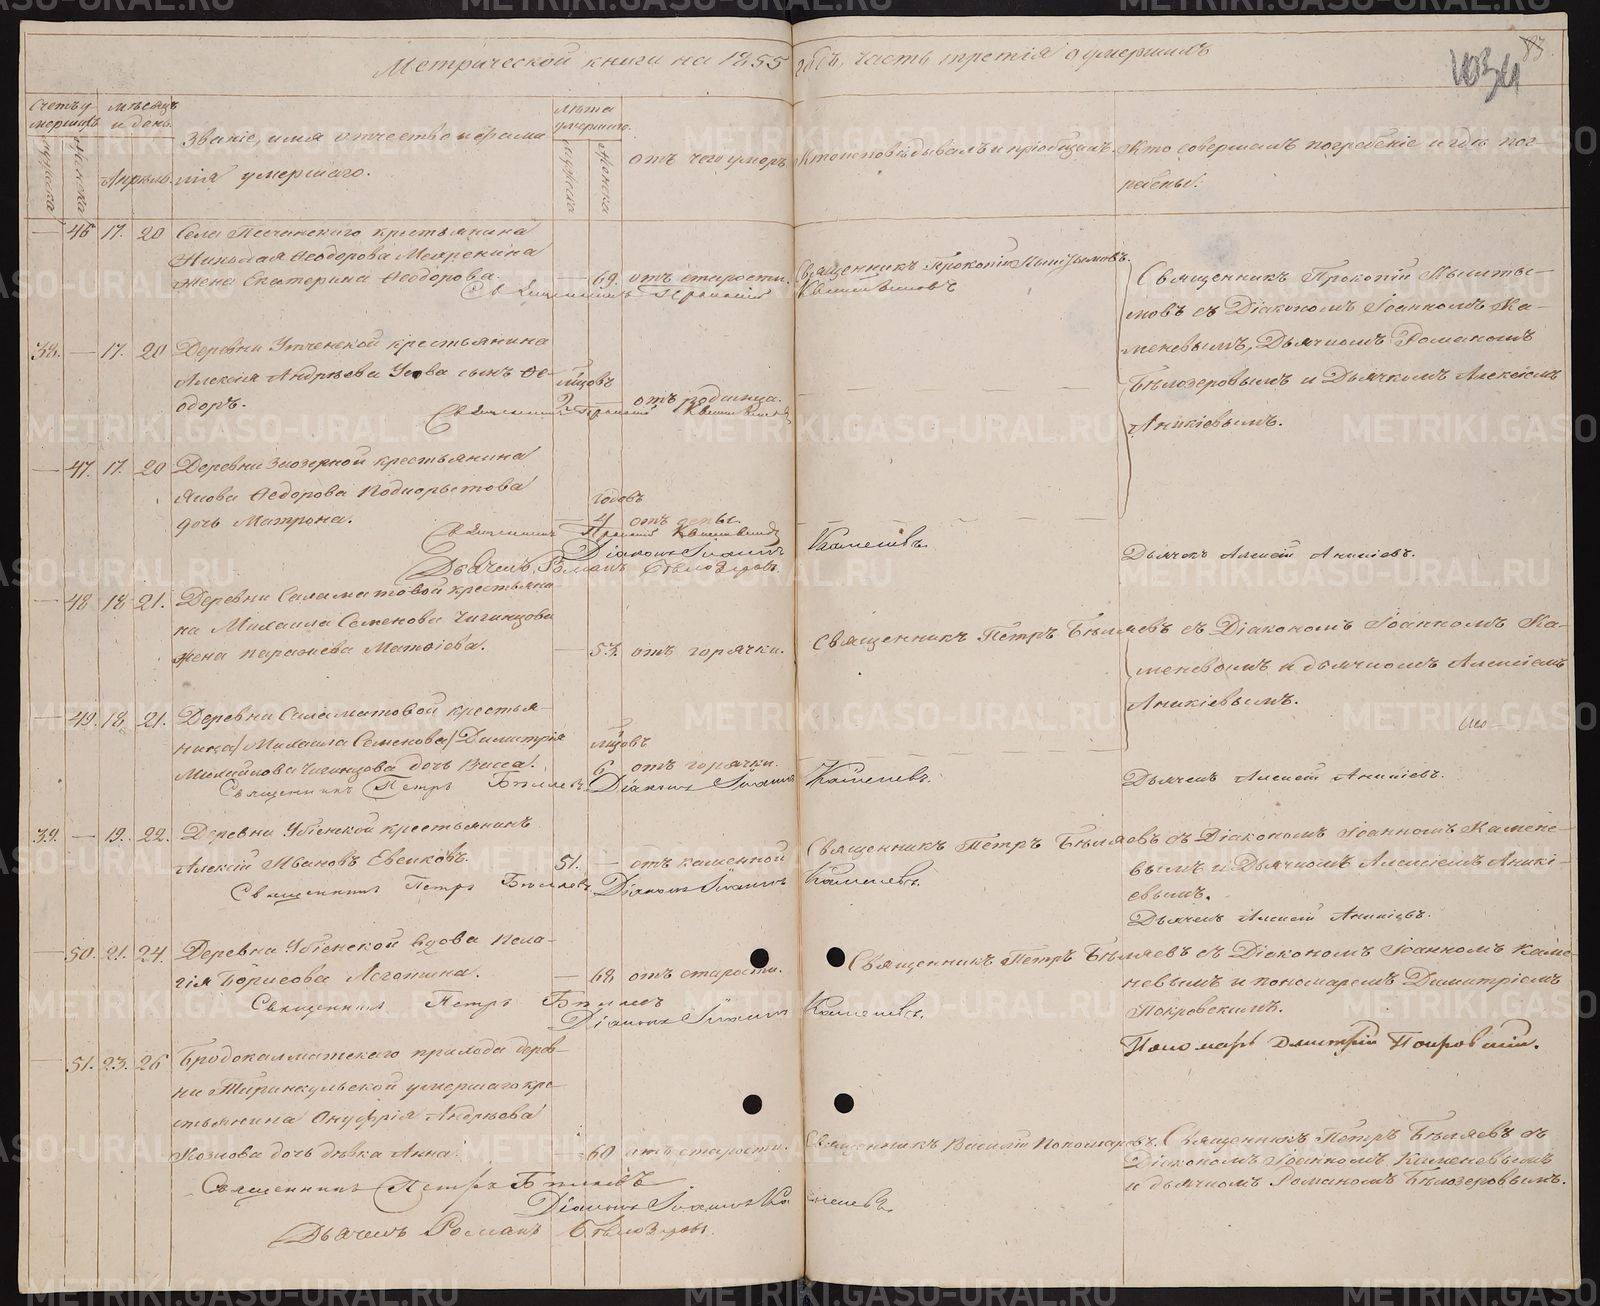 Метрической книги на 1855 годъ, часть третія о умершихъ
1034
83
Счетъ умершихъ
мѣсяцъ и день.
Званіе, имя отчество и фамилія умершаго.
лѣта умершаго.
отъ чего умеръ
Кто исповѣдывалъ и пріобщалъ.
Кто совершалъ погребеніе и гдѣ погребены.
мужеска
женска
Апрѣль.
мужеска
женска
— 46 17. 20 Села Песчанскаго крестьянина
Николая Ѳеодорова
жена Екатерина Ѳеодорова. — 69. отъ старости. Священникъ Прокопій
Священникъ Прокопій
Священникъ Прокопій
мовъ съ Діакономъ Іоанномъ Ка-
меневымъ, Дьячкомъ Романомъ
Бѣлозеровымъ и Дьячкомъ Алексіемъ
Аникіевымъ.
38. — 17. 20 Деревни крестьянина
Алексія Андрѣева Усова сынъ Ѳе-
одоръ. 2 — отъ родимца.
Священникъ Прокопій
— 47. 17. 20 Деревни Заозерной крестьянина
Якова Ѳедорова Подкорытова
дочь Матрона. годовъ 4 отъ оспы.
Священникъ Прокопій
Діаконъ Іоаннъ Каменевъ.
Дьячекъ Романъ Бѣлозеровъ.
Дьячекъ Алексѣй Аникіевъ.
— 48 18 21. Деревни Саламатовой крестьяни-
на Михаила Семенова Чигинцова
жена Параскева Матвіева. — 53. отъ горячки.
Священникъ Петръ Бѣляевъ съ Діакономъ Іоанномъ Ка-
меневымъ и дьячкомъ Алексіемъ
Аникіевымъ.
— 49. 18. 21. Деревни Саламатовой крестья-
нина/Михаила Семенова/Димитрія
Михайлова Чигинцова дочь Васса. 6 отъ горячки.
Священникъ Петръ Бѣляевъ. Діаконъ Іоаннъ Каменевъ.
Дьячекъ Алексѣй Аникіевъ.
39. — 19. 22. Деревни крестьянинъ
Алексій Ивановъ Евсиковъ. 51. — отъ каменной
Священникъ Петръ Бѣляевъ. Діаконъ Іоаннъ Каменевъ.
Священникъ Петръ Бѣляевъ съ Діакономъ Іоанномъ Камене-
вымъ и Дьячкомъ Алексіемъ Аникі-
евымъ.
Дьячекъ Алексѣй Аникіевъ.
— 50. 21. 24. Деревни вдова Пела-
гія Борисова — 68. отъ старости.
Священникъ Петръ Бѣляевъ
Діаконъ Іоаннъ Каменевъ.
Священникъ Петръ Бѣляевъ съ Діакономъ Іоанномъ Каме-
невымъ и пономаремъ Димитріемъ
Покровскимъ.
Пономарь Дмитрій Покровскій.
— 51. 23. 26 Бродокалматскаго прихода дерев-
ни умершаго кре-
стьянина Онуфрія Андрѣева
Козлова дочь дѣвка Анна 60 отъ старости.
Священникъ Василій Пономаревъ.
Священникъ Петръ Бѣляевъ съ
Діакономъ Іоанномъ Каменевымъ
и дьячкомъ Романомъ Бѣлозеровымъ.
Священникъ Петръ Бѣляевъ
Діаконъ Іоаннъ Каменевъ.
Дьячекъ Романъ Бѣлозеровъ.
METRIKI.GASO-URAL.RU